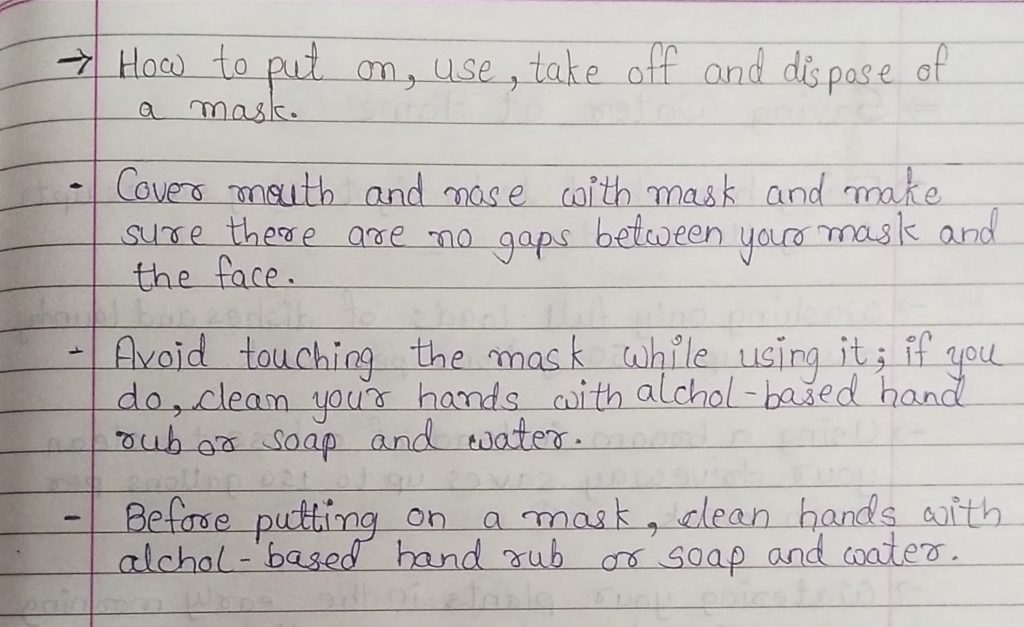 → How to put on, use, take off and dispose of
a mask.
- Cover mouth and nose with mask and make
sure there are no gaps between your mask and
the face.
- Avoid touching the mask while using it; if you
do, clean your hands with alchol-based hand
rub or soap and water.
- Before putting on a mask, clean hands with
alchol-based hand rub or soap and water.